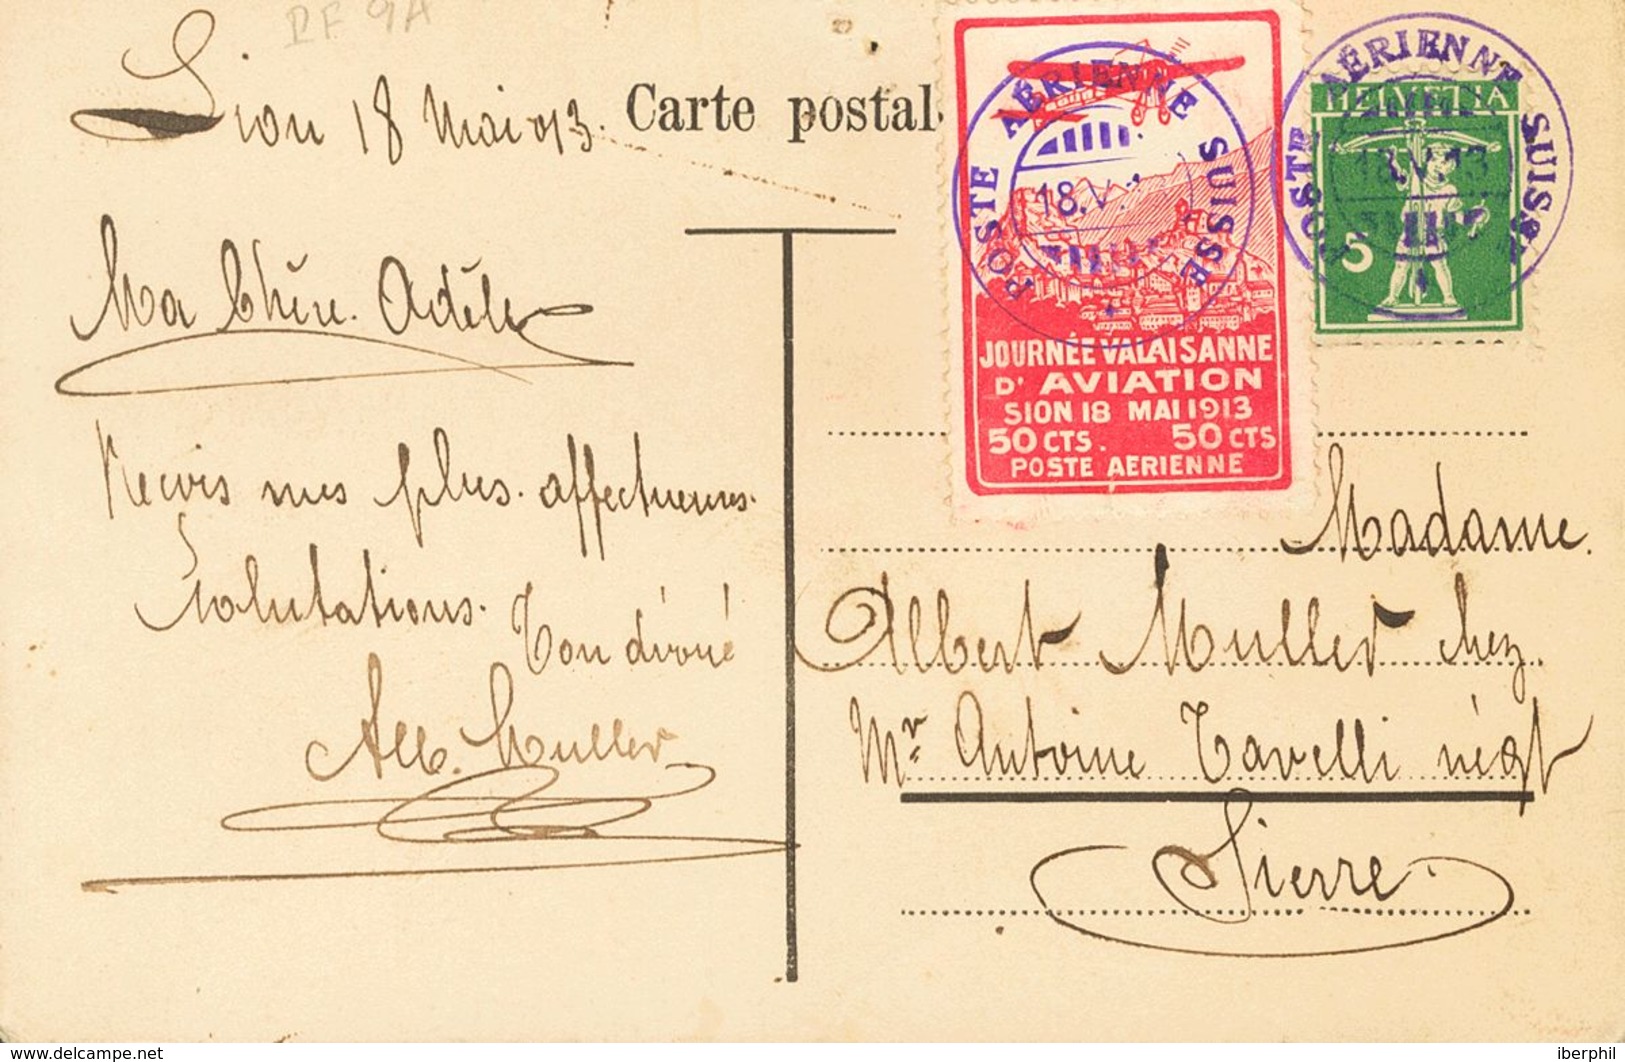 RF 9A
Sion 18 Mai 913.
Carte postal
POSTE AÉRIENNE SUISSE
18.V.
JOURNÉE VALAISANNE
D' AVIATION
SION 18 MAI 1913
50 CTS. 50 CTS
POSTE AERIENNE
POSTE AÉRIENNE SUISSE
18.V.13
HELVETIA
5
Ma Chère. Adèle
Reçois mes plus. affectueuses.
Salutations.
Ton dévoué
Alb. Muller
Madame.
Albert Muller chez.
Mr Antoine Tavelli négt
Sierre.
www.delcampe.net
iberphil